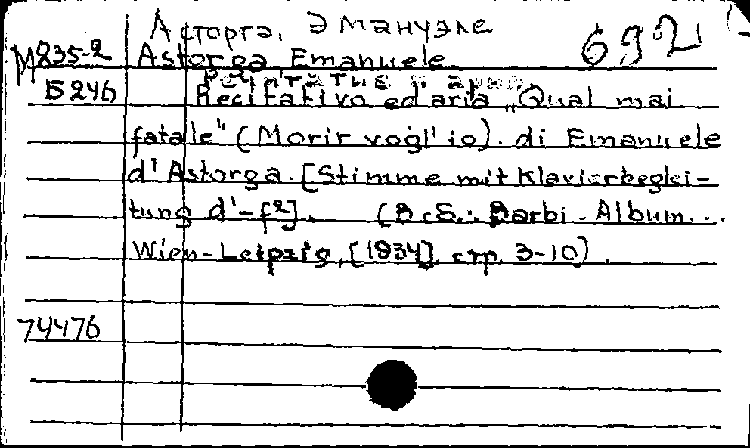 Асторга, Эмануэле
692
М235-2 Astorga Emanuele
речитатив и ария
Б246 Recitativo ed aria „Qual mai
fatale" (Morir vogl' io). di Emanuele
d' Astorga. [Stimme mit Klavierbeglei-
tung d'-f²]. (В сб.: Barbi-Album...
Wien-Leipzig, [1934], стр. 3-10).
74476